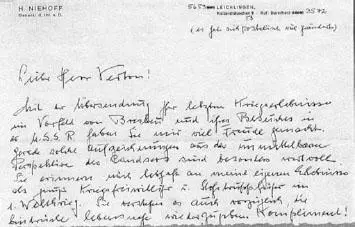 H. NIEHOFF
General d. Inf. a. D.
5653 LEICHLINGEN,
(der Jahr mit
Lieber Herr Verton!
Mit der Übersendung Ihrer letzten Kriegserlebnisse
im Vorfeld von Breslau und Ihres Besuches in
der U.S.S.R haben Sie mir viel Freude gemacht.
Gerade solche Aufzeichnungen aus der unmittelbaren
Perspektive des Landsers sind besonders wertvoll.
Sie erinnern mich lebhaft an meine eigenen Erlebnisse
als junger Kriegsfreiwilliger u. Stoßtruppführer im
1. Weltkrieg. Sie verstehen es auch vorzüglich, die
Eindrücke lebensnah wiederzugeben. Kompliment!